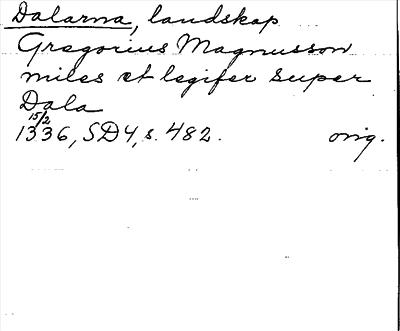 Dalarna, landskap
Gregorius Magnusson
miles et legifer super
Dala
15/2
1336, SD4, s. 482. orig.